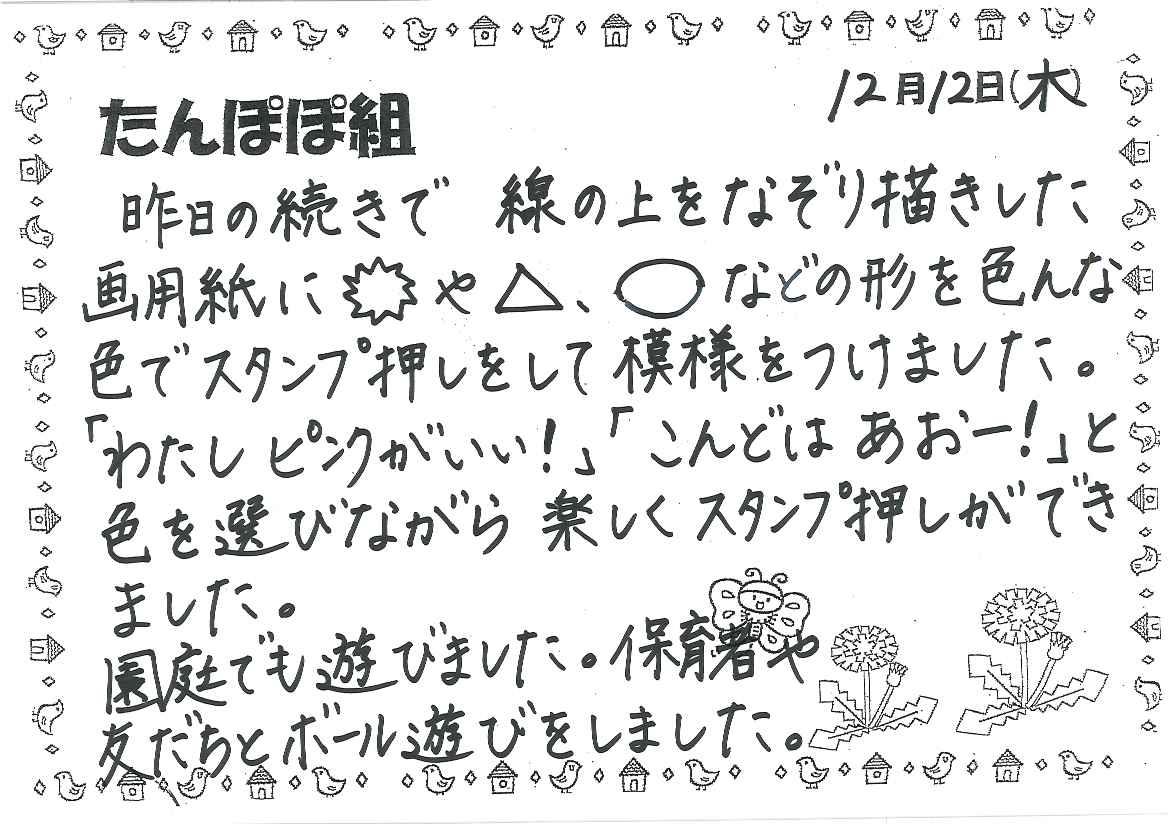 12月12日(木)
たんぽぽ組
昨日の続きで 線の上をなぞり描きした
画用紙に や △、 などの形を色んな
色でスタンプ押しをして模様をつけました。
「わたし ピンクがいい!」「こんどは あおー!」と
色を選びながら 楽しくスタンプ押しができ
ました。
園庭でも遊びました。保育者や
友だちとボール遊びをしました。